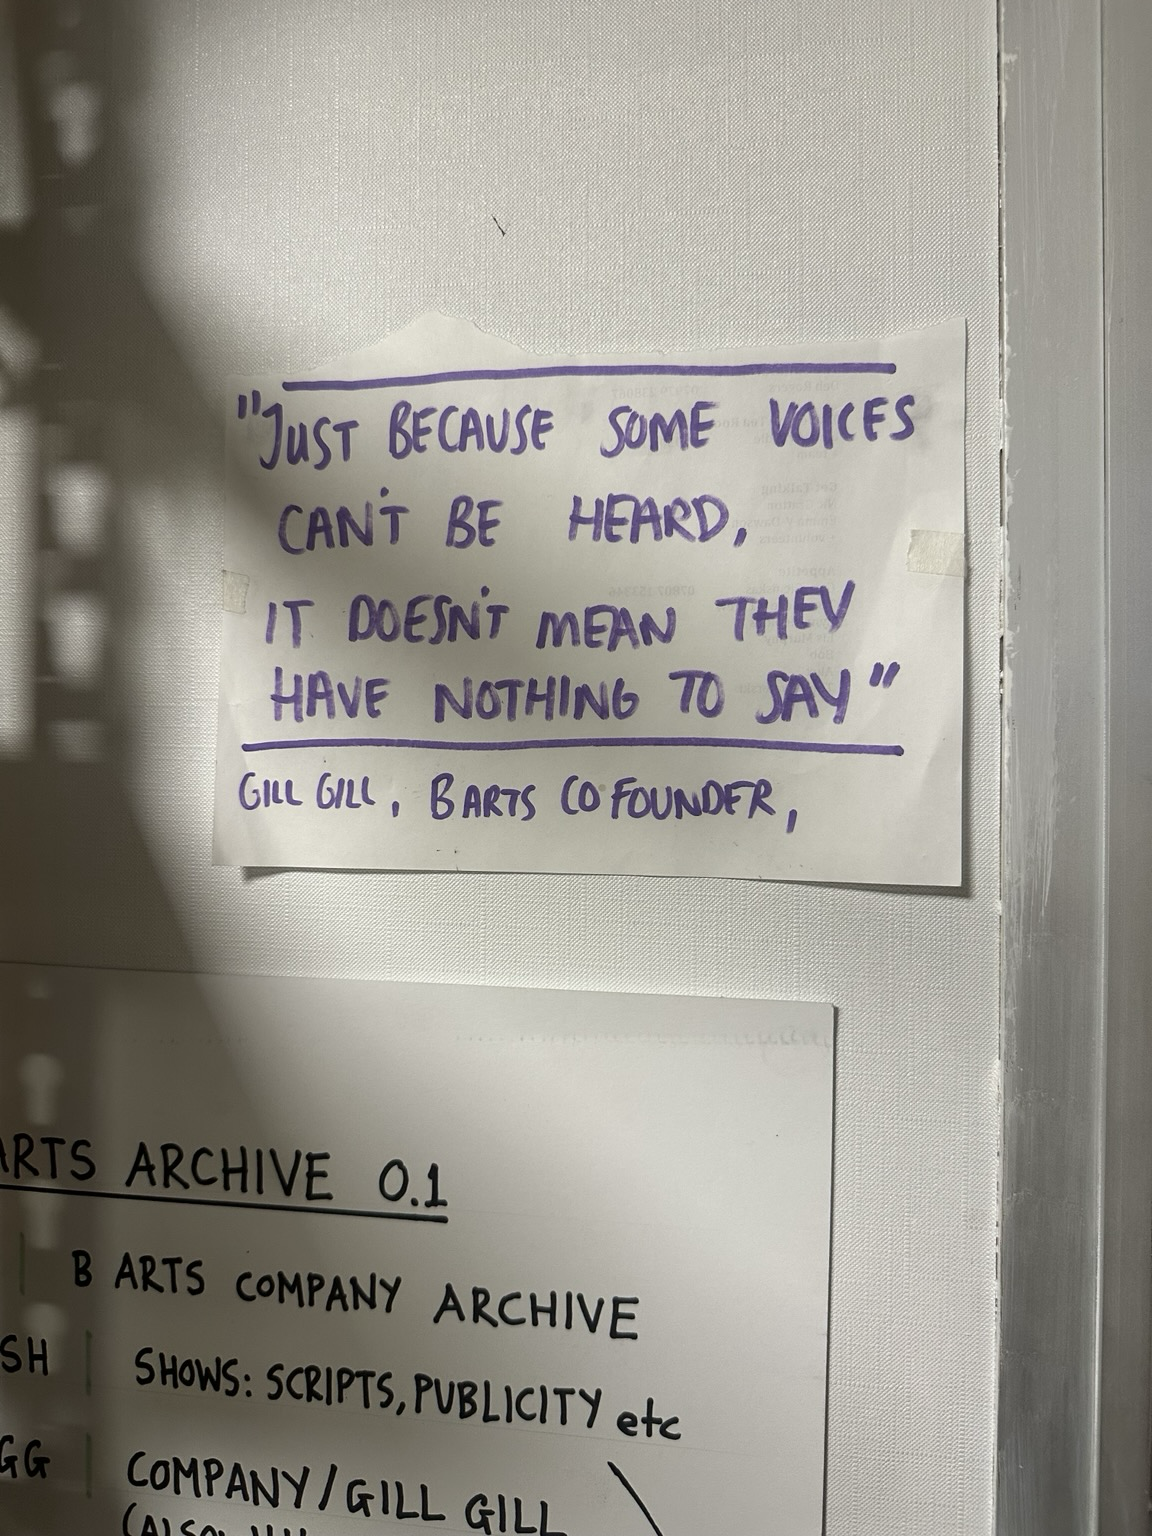 "JUST BECAUSE SOME VOICES
CAN'T BE HEARD,
IT DOESN'T MEAN THEY
HAVE NOTHING TO SAY"
GILL GILL, B ARTS CO FOUNDER,
ARTS ARCHIVE 0.1
B ARTS COMPANY ARCHIVE
SH SHOWS: SCRIPTS, PUBLICITY etc
GG COMPANY/GILL GILL
(ALSO: